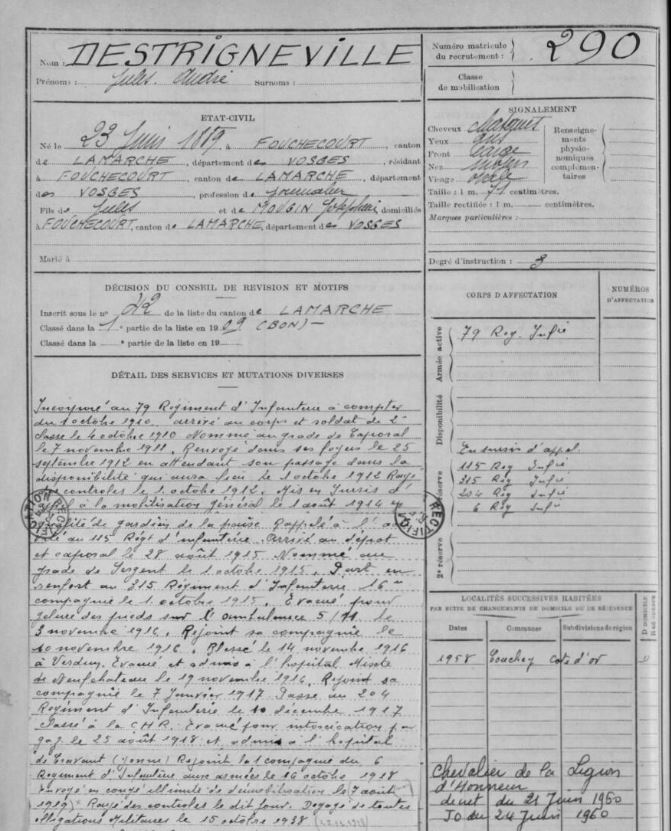 Nom : DESTRIGNEVILLE
Prénoms : Jules André Surnoms :
Numéro matricule
du recrutement : 290
Classe
de mobilisation
ETAT-CIVIL
Né le 23 Juin 1889, à FOUCHECOURT, canton
de LAMARCHE, département des VOSGES, résidant
à FOUCHECOURT, canton de LAMARCHE, département
des VOSGES, profession de
Fils de Jules et de MOUGIN Joséphine domiciliés
à FOUCHECOURT, canton de LAMARCHE, département des VOSGES
Marié à
SIGNALEMENT
Cheveux
Yeux gris
Front large
Nez moyen
Visage ovale
Renseigne-
ments
physio-
nomiques
complémen-
taires
Taille : 1 m. 71 centimètres.
Taille rectifiée : 1 m. centimètres.
Marques particulières :
Degré d'instruction : 3
DÉCISION DU CONSEIL DE REVISION ET MOTIFS
Inscrit sous le n° 22 de la liste du canton de LAMARCHE
Classé dans la 1e partie de la liste en 1909 (BON)
Classé dans la e partie de la liste en 19
CORPS D'AFFECTATION
NUMÉROS
D'AFFECTATION
Armée active
79 Reg. Infie
Disponibilité
En sursis d'appel
115 Reg Infie
315 Reg Infie
204 Reg Infie
6 Reg Infie
2e réserve
DÉTAIL DES SERVICES ET MUTATIONS DIVERSES
Incorporé au 79 Régiment d'Infanterie à compter
du 1 octobre 1910, arrivé au corps et soldat de 2e
classe le 4 octobre 1910 Nommé au grade de Caporal
le 7 novembre 1911, Renvoyé dans ses foyers le 25
septembre 1912 en attendant son passage dans la
disponibilité qui aura lieu le 1 octobre 1912 Rayé
des controles le 1 octobre 1912. Mis en sursis d'
appel à la mobilisation général le 1 août 1914 en
qualité de gardien de la Rappelé à l'
au 115 Régt d'infanterie. arrivé au dépôt
et caporal le 28 août 1915 Nommé au
grade de Sergent le 1 octobre 1915, Part en
renfort au 315 Régiment d'Infanterie 16me
compagnie le 1 octobre 1915, Evacué pour
gelure des pieds sur l'ambulance 5/71 le
3 novembre 1916, Rejoint sa compagnie le
10 novembre 1916, Blessé le 14 novembre 1916
à Verdun. Evacué et admis à l'hopital Mixte
de Neufchateau le 19 novembre 1916, Rejoint sa
compagnie le 7 Janvier 1917 Passé au 204
Régiment d'Infanterie le 10 décembre 1917
Passé à la C.H.R. Evacué pour intoxication par
gaz le 25 août 1918 et admis à l'hopital
de Cravant (Yonne) Rejoint la 1 compagnie du 6
Régiment d'Infanterie aux armées le 16 octobre 1918
Envoyé en congé illimité de démobilisation le 7 août
1919. Rayé des controles le dit jour. Dégagé de toutes
obligations Militaires le 15 octobre 1938
RECTIFICATION
LOCALITÉS SUCCESSIVES HABITÉES
PAR SUITE DE CHANGEMENTS DE DOMICILE OU DE RÉSIDENCE
Dates Communes Subdivisions de région
D domicile
R résidence
1958 Couchey cote d'or
Chevalier de la Légion
d'Honneur
décret du 21 Juin 1960
JO du 24 Juin 1960